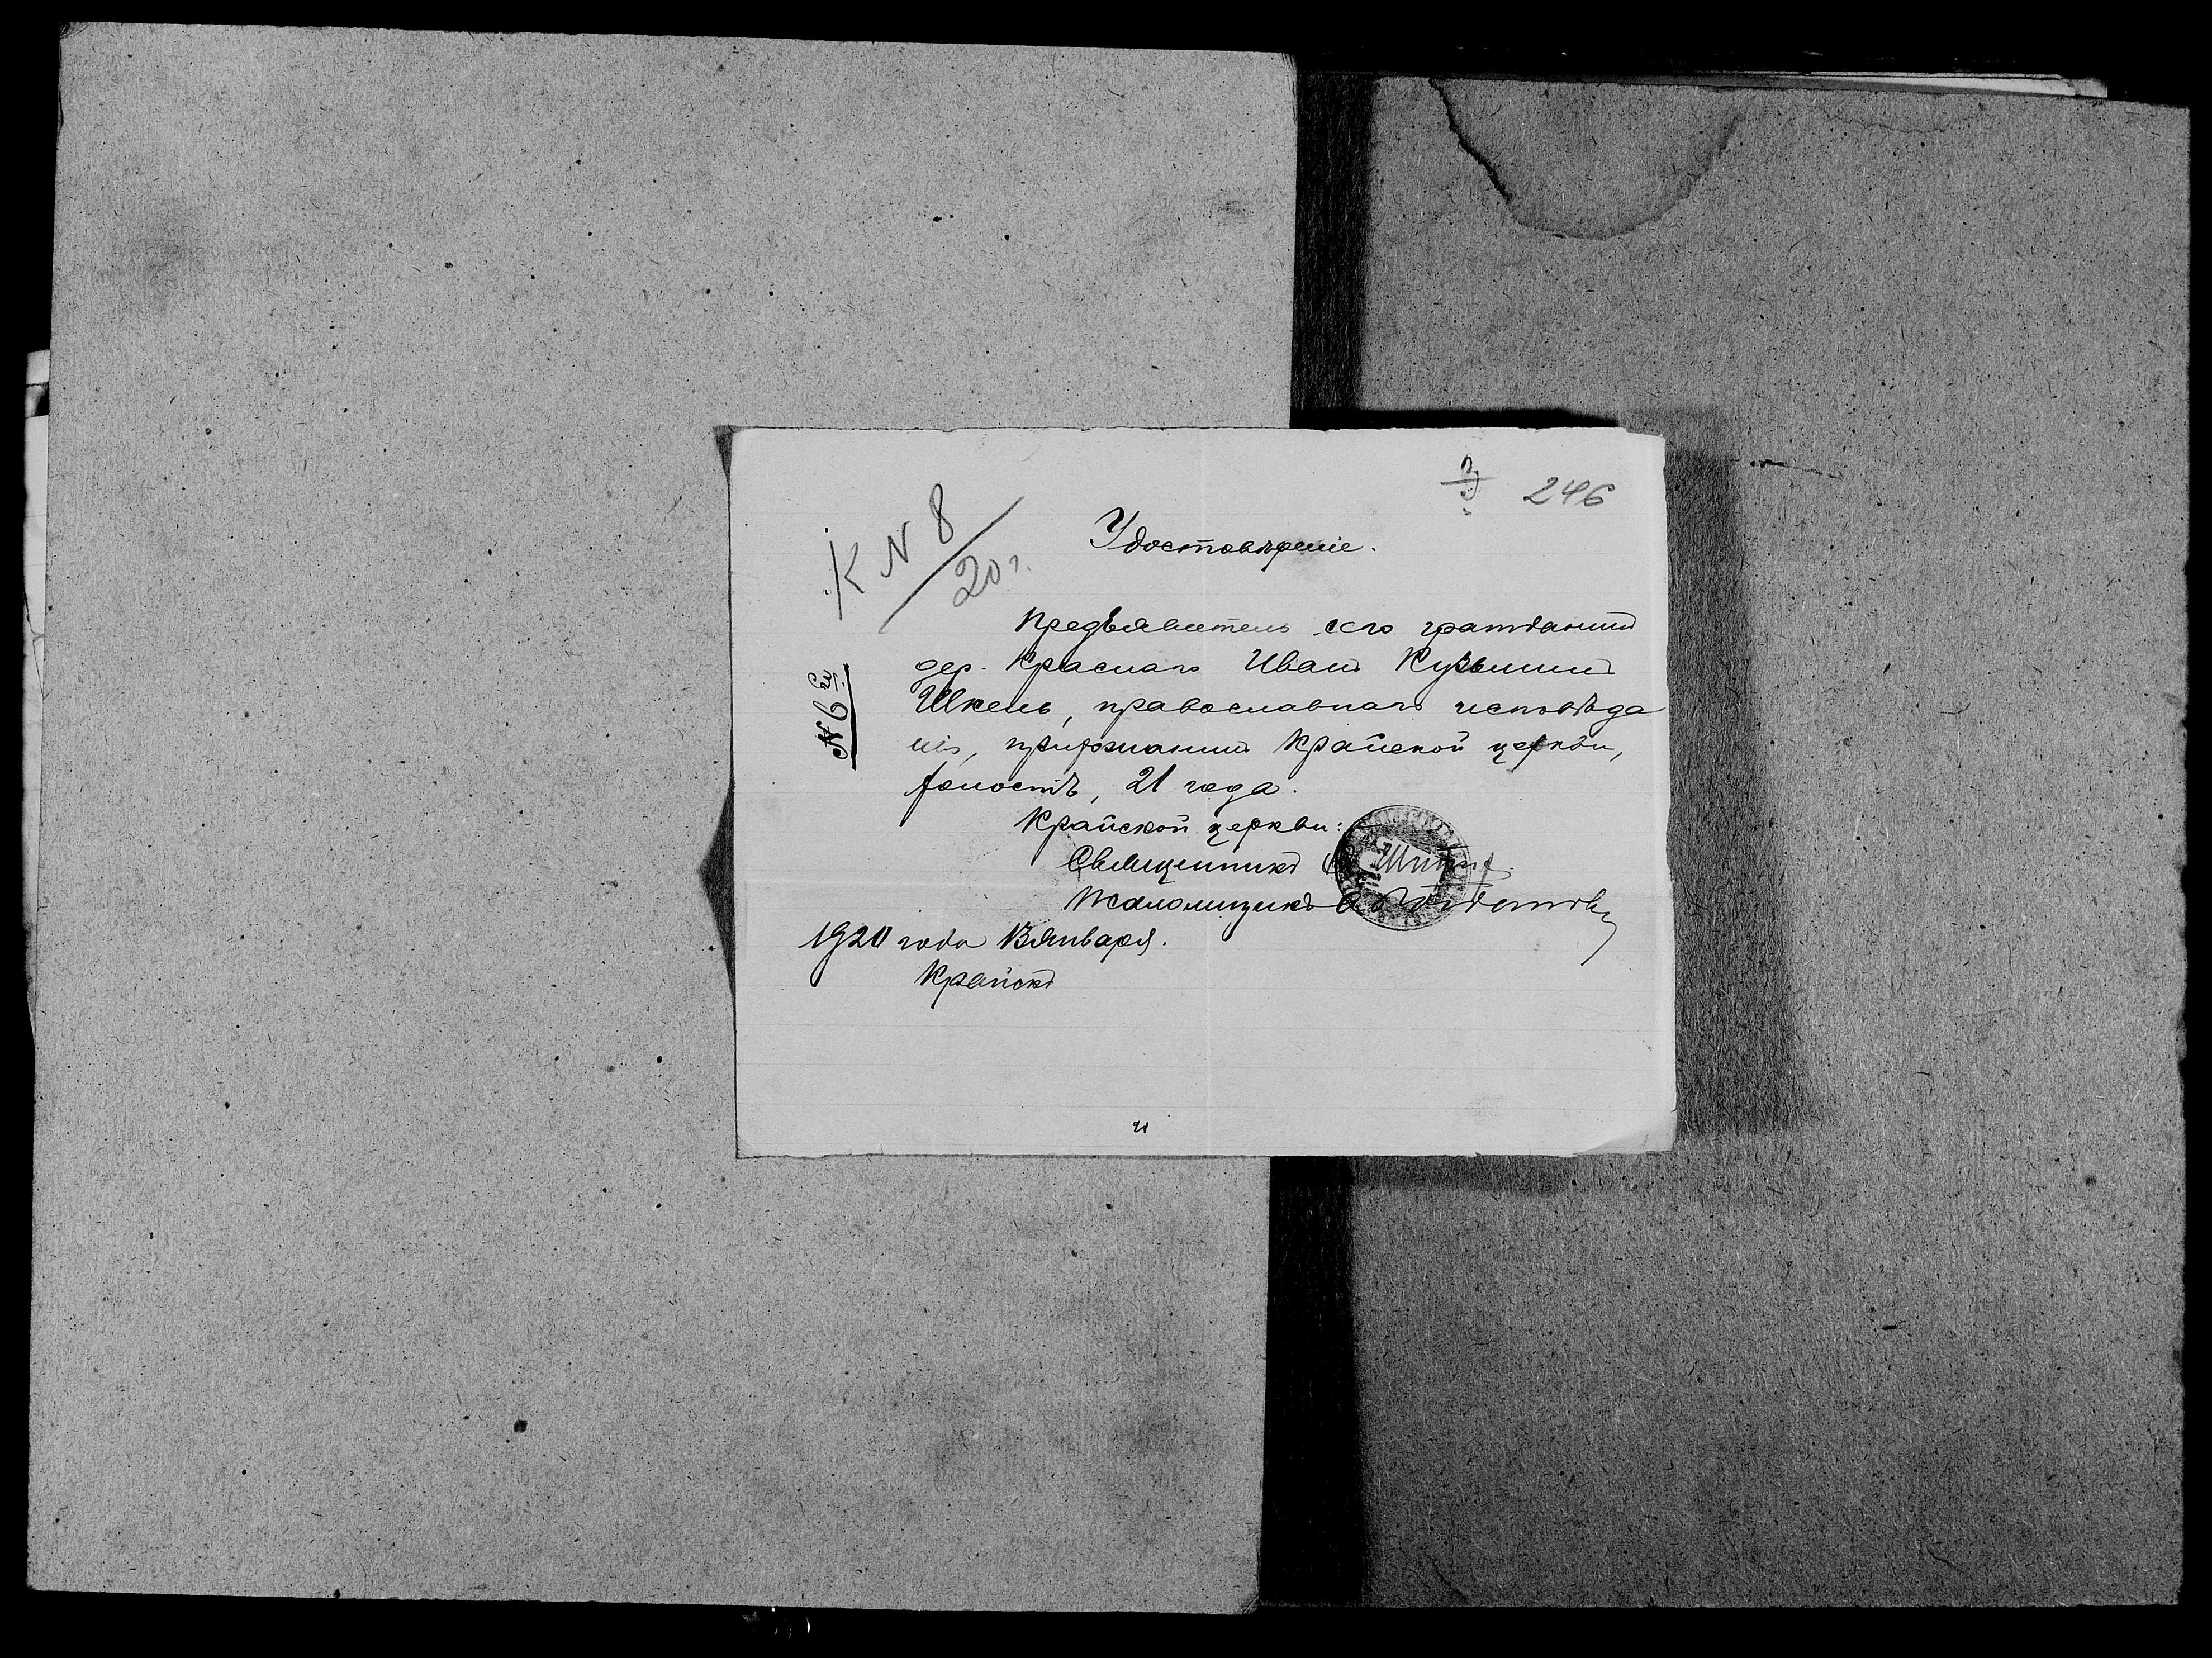 246
К N 8
20 г.
Удостовѣреніе.
N 6й
Предъявитель сего гражданинъ
дер. Краснаго Иванъ Кузьминъ
Шкель, православнаго исповѣда
нія, прихожанинъ Крайской церкви,
холостъ, 21 года.
Крайской церкви:
Священникъ
Псаломщикъ
1920 года 13 января.
Крайскъ